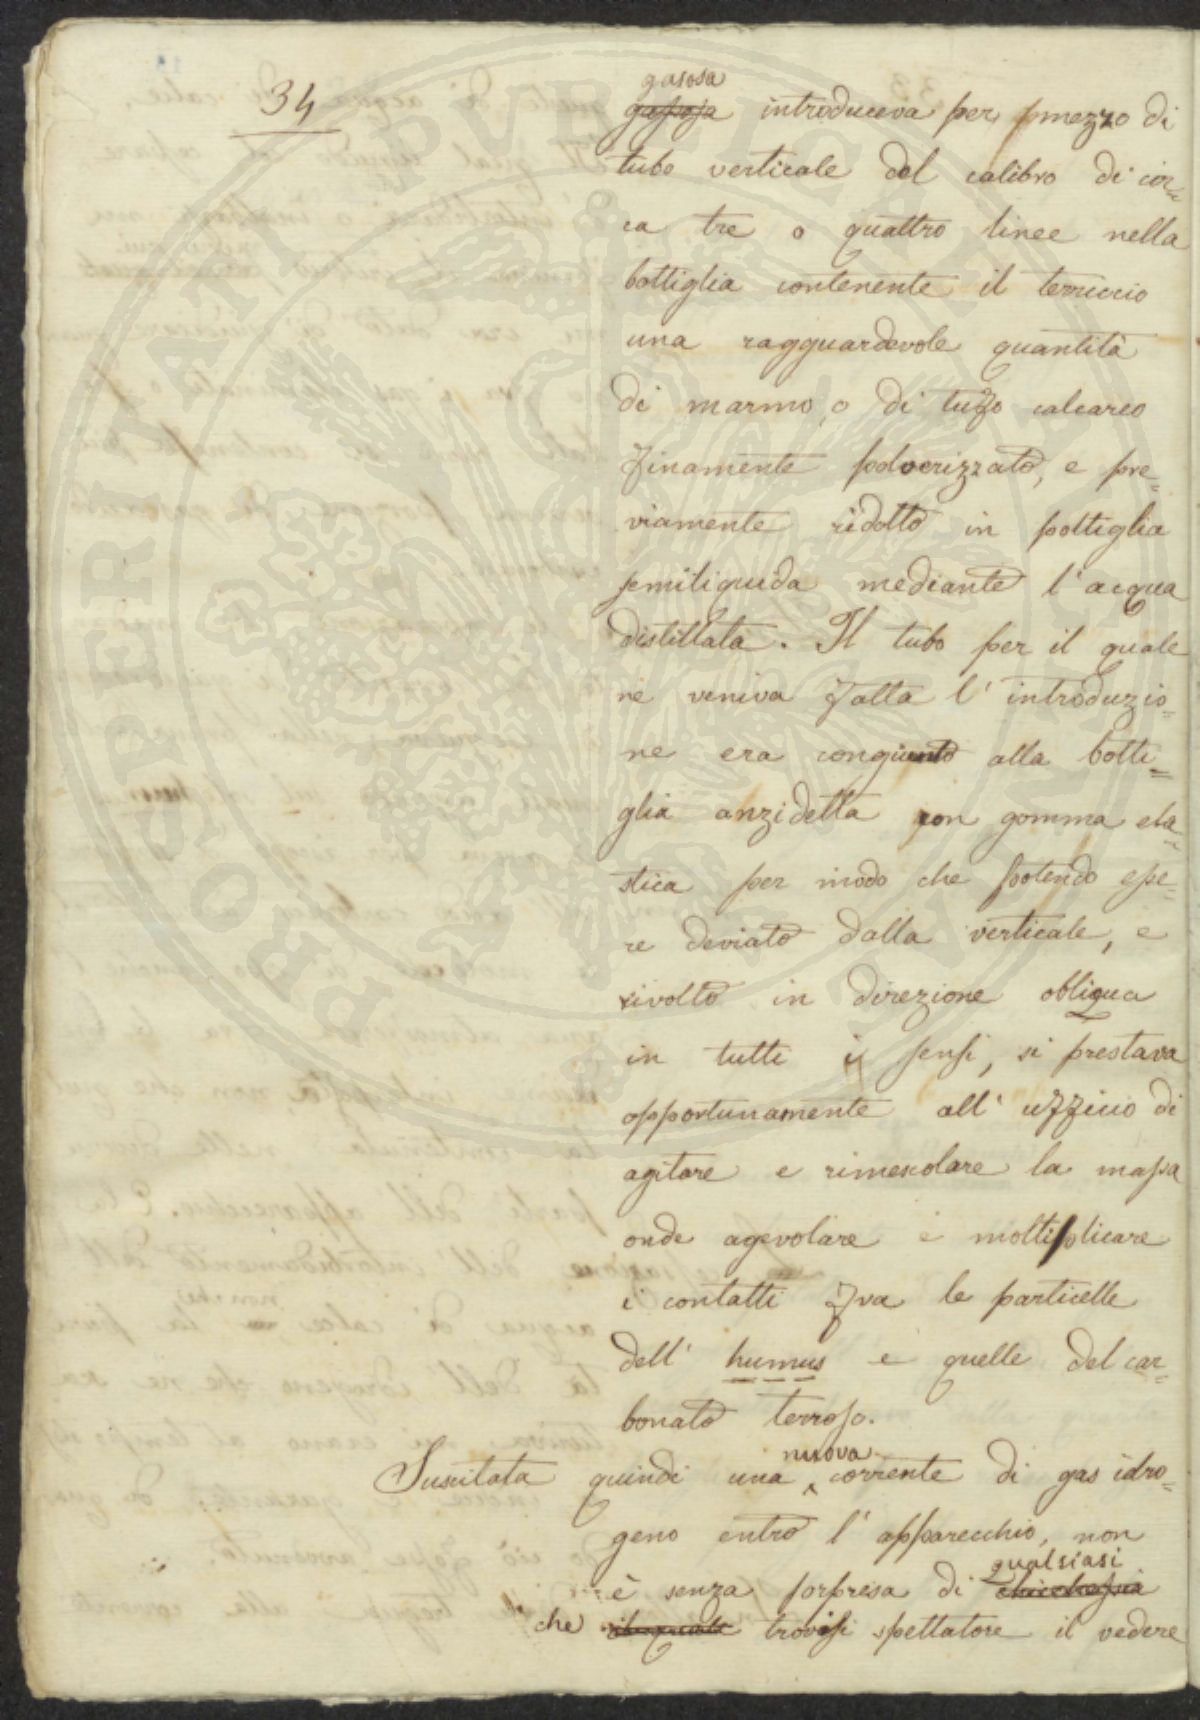 34
gasosa
gassosa introduceva per mezzo di
tubo verticale del calibro di cir=
ca tre o quattro linee nella
bottiglia contenente il terriccio
una ragguardevole quantità
di marmo, o di tufo calcareo
finamente polverizzato, e pre=
viamente ridotto in poltiglia
semiliquida mediante l'acqua
distillata. Il tubo per il quale
ne veniva fatta l'introduzio=
ne era congiunto alla botti=
glia anzidetta con gomma ela=
stica per modo che potendo esse=
re deviato dalla verticale, e
rivolto in direzione obliqua
in tutti i sensi, si prestava
opportunamente all'uffizio di
agitare e rimescolare la massa
onde agevolare e moltiplicare
i contatti fra le particelle
dell'humus e quelle del car=
bonato terroso.
nuova
Suscitata quindi una corrente di gas idro=
geno entro l'apparecchio, non
qualsiasi
è senza sorpresa di chicchessia
che trovisi spettatore il vedere
PROSPERITATI PVBLICAE AVGENDAE